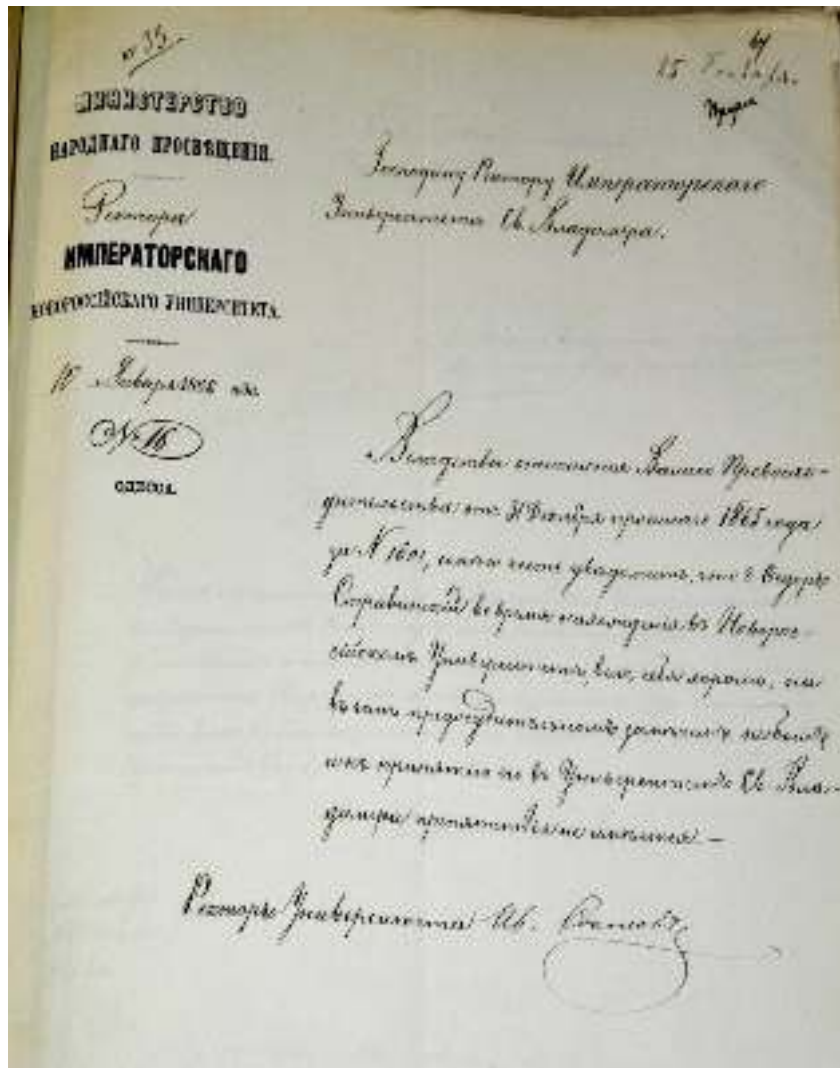 № 35.
64
15 Января.
МИНИСТЕРСТВО
НАРОДНАГО ПРОСВѢЩЕНІЯ.
Ректоръ
ИМПЕРАТОРСКАГО
НОВОРОССІЙСКАГО УНИВЕРСИТЕТА.
10 Января 1866 года.
№ 16
ОДЕССА.
Господину Ректору Императорскаго
Университета Св. Владиміра.
Вслѣдствіе отношенія Вашего Превосхо-
дительства отъ 31 Декабря прошлаго 1865 года
за № 1601, имѣю честь увѣдомить, что г. Ѳедоръ
Стравинскій во время нахожденія въ Новорос-
сійскомъ Университетѣ, велъ себя хорошо, ни
въ чемъ предосудительномъ замѣченъ не былъ
и къ принятію его въ Университетъ Св. Вла-
диміра препятствія не имѣется —
Ректоръ Университета Ив. Соколовъ